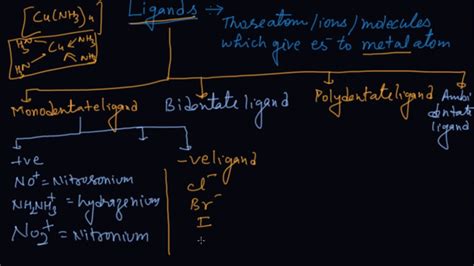 [Cu(NH3)4
H3N → Cu ← NH3
H3N NH3
Ligands → Those atom/ions/molecules
which give es⁻ to metal atom
Monodentate ligand
Bidentate ligand
Polydentate ligand
Ambi
dentate
ligand
+ve
NO⁺ = Nitrosonium
NH2NH3⁺ = hydrazenium
NO2⁺ = Nitronium
-ve ligand
Cl⁻
Br⁻
I